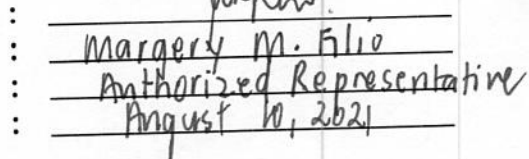 :
: Margery M. Filio
: Authorized Representative
: August 10, 2021